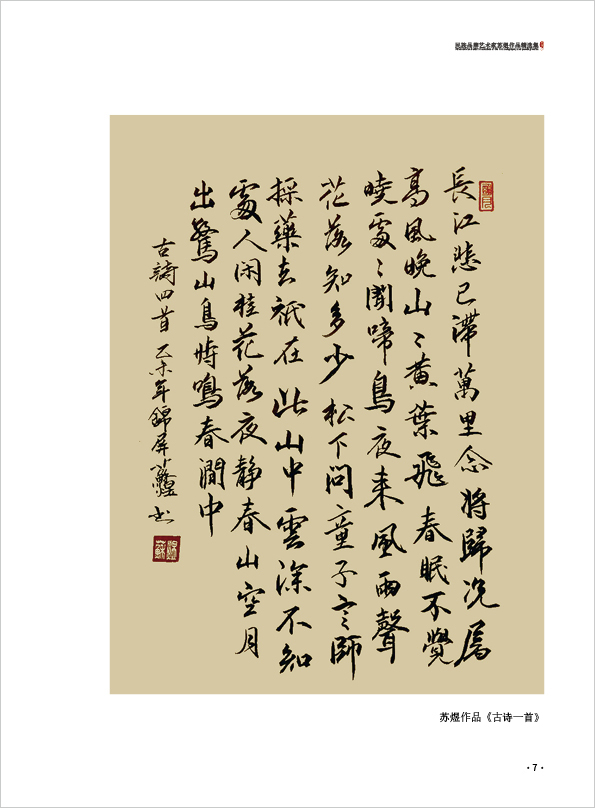 民族品牌艺术家苏煜作品精选集
長江悲已滯萬里念將歸況屬
高風晚山〻黃葉飛春眠不覺
曉處〻聞啼鳥夜来風雨聲
花落知多少松下問童子言師
採藥去祇在此山中雲深不知
處人闲桂花落夜静春山空月
出驚山鳥時鳴春澗中
古詩四首 乙未年錦屏蘇煜书
苏煜作品《古诗一首》
·7·